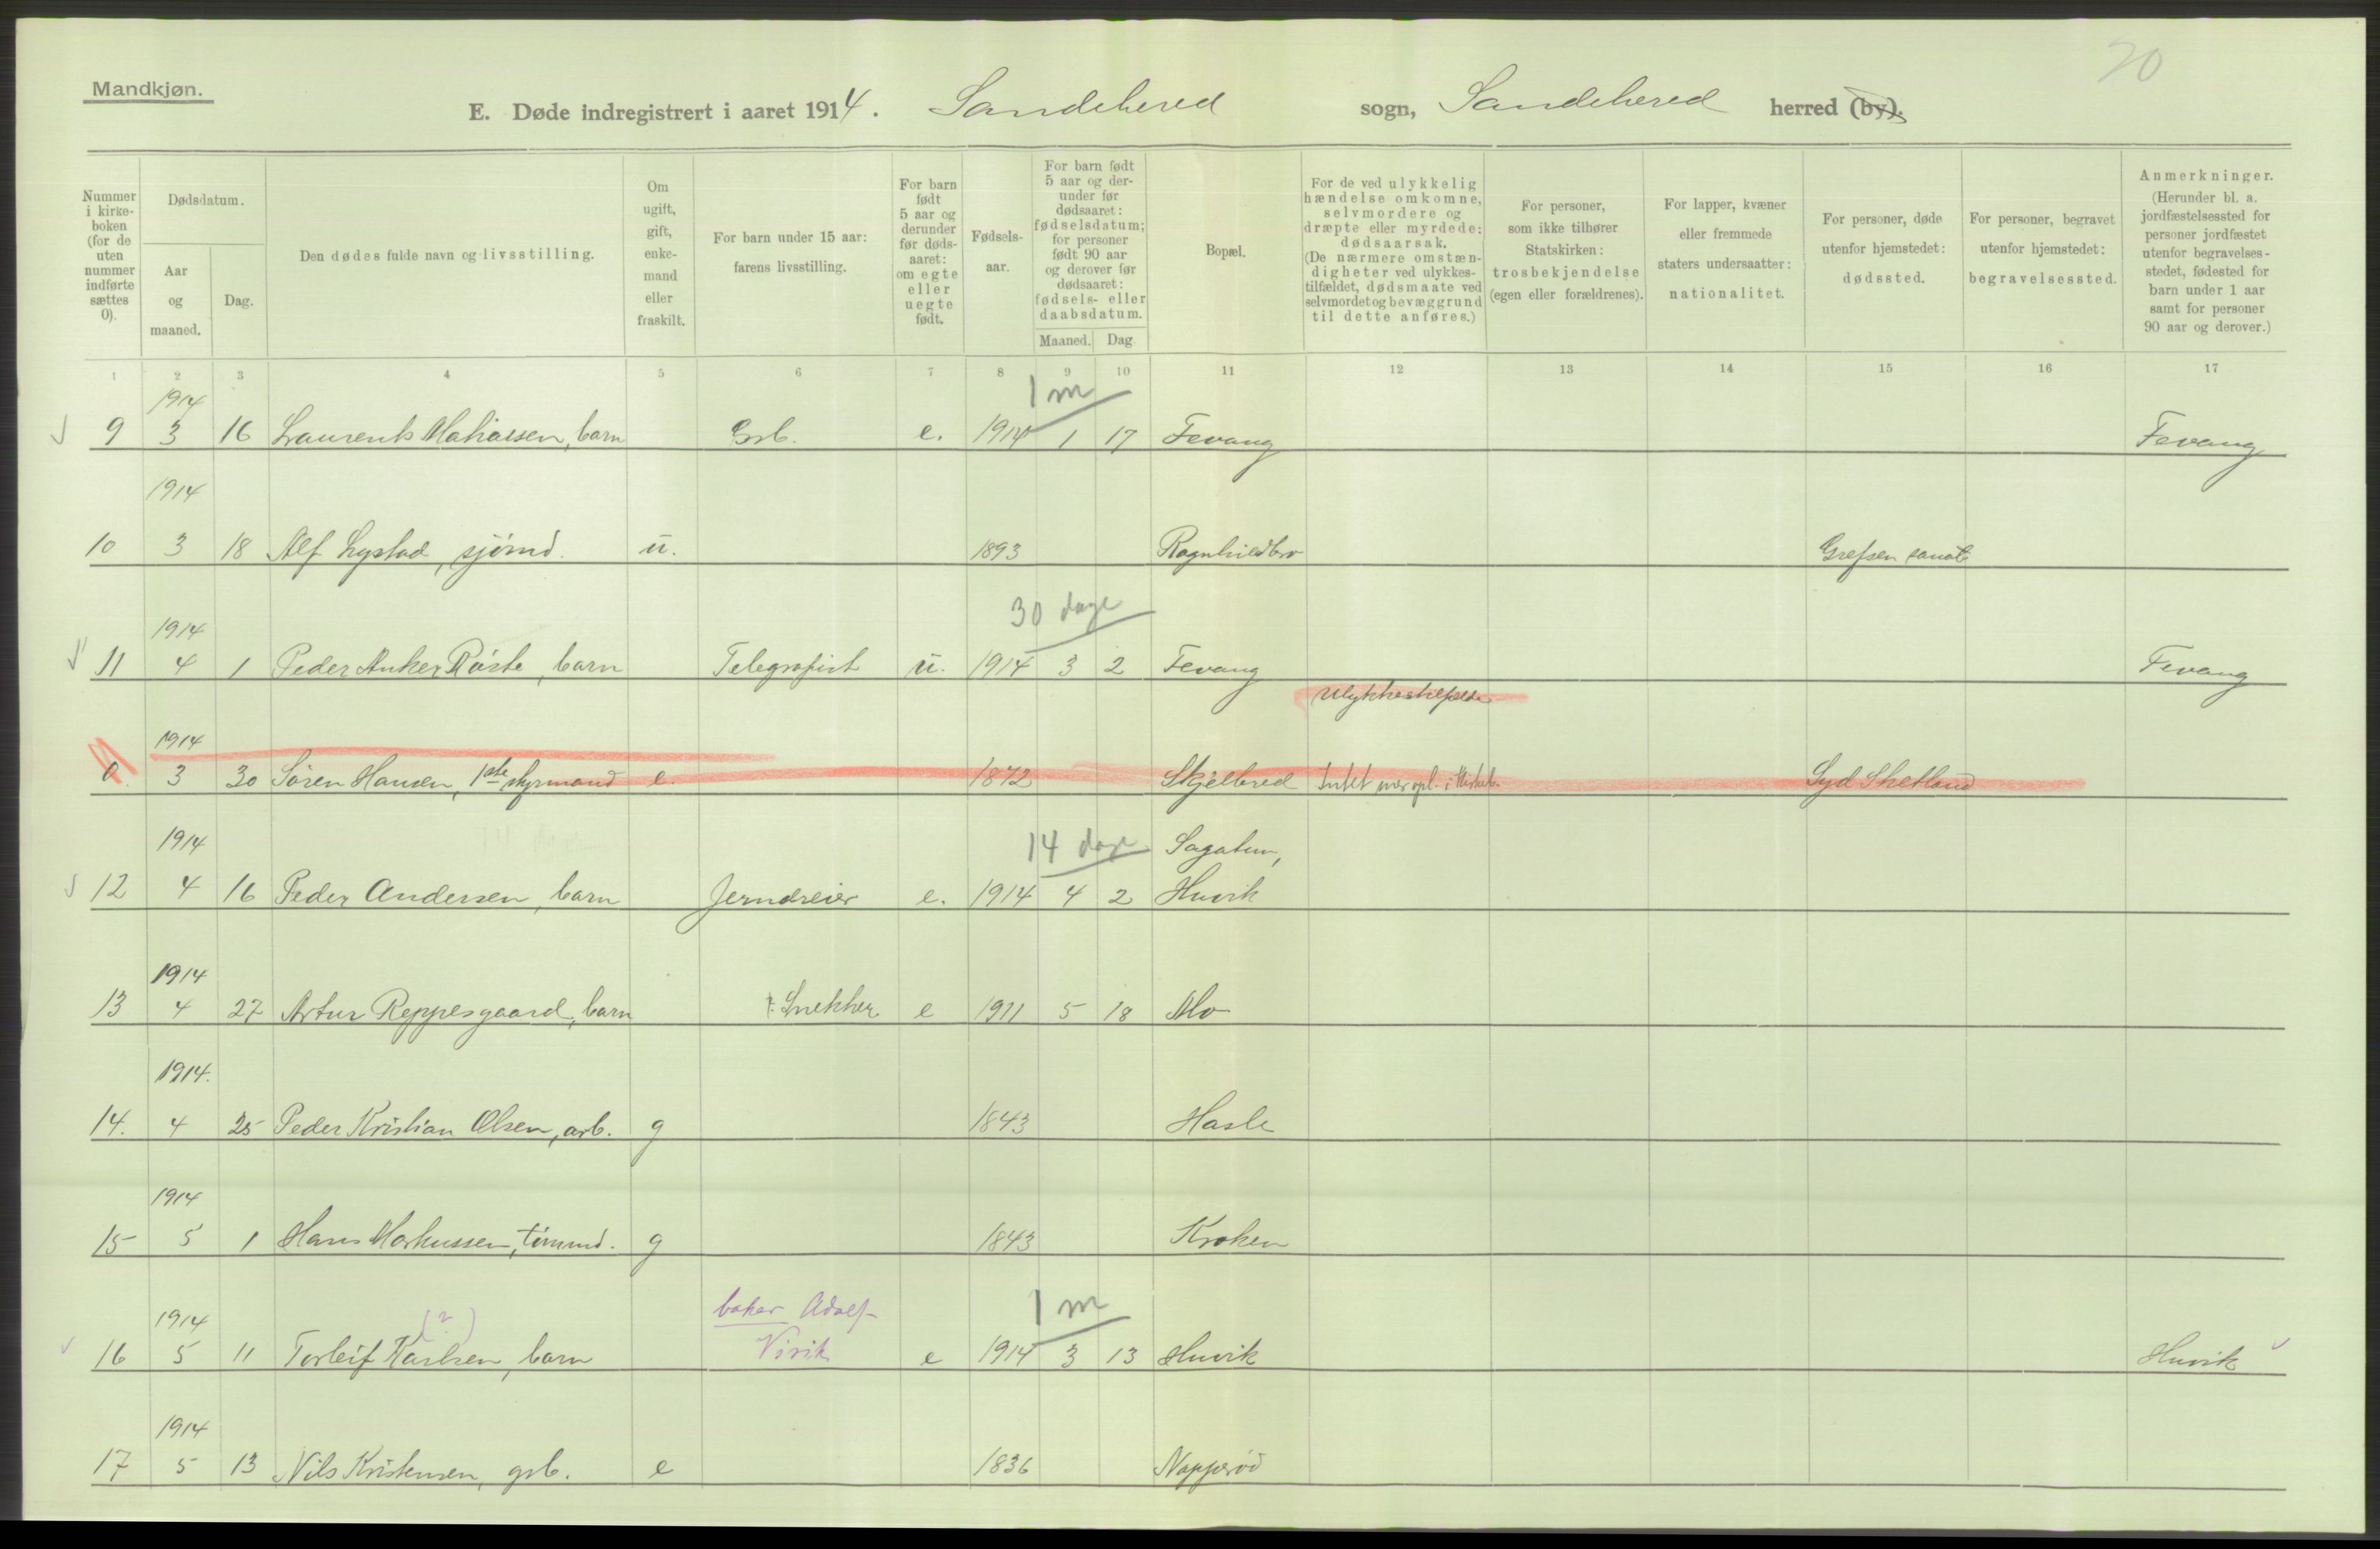 20
Mandkjøn.
E. Døde indregistrert i aaret 1914. Sandehered sogn, Sandehered herred (by).
Nummer i kirkeboken (for de uten nummer indførte sættes 0).
Dødsdatum.
Aar og maaned.
Dag.
Den dødes fulde navn og livsstilling.
Om ugift, gift, enkemand eller fraskilt.
For barn under 15 aar: farens livsstilling.
For barn født 5 aar og derunder før dødsaaret: om egte eller uegte født.
Fødselsaar.
For barn født 5 aar og derunder før dødsaaret: fødselsdatum; for personer født 90 aar og derover før dødsaaret: fødsels- eller daabsdatum.
Maaned. Dag
Bopæl.
For de ved ulykkelig hændelse omkomne, selvmordere og dræpte eller myrdede: dødsaarsak. (De nærmere omstændigheter ved ulykkestilfældet, dødsmaate ved selvmordet og bevæggrund til dette anføres.)
For personer, som ikke tilhører Statskirken: trosbekjendelse (egen eller forældrenes).
For lapper, kvæner eller fremmede staters undersaatter: nationalitet.
For personer, døde utenfor hjemstedet: dødssted.
For personer, begravet utenfor hjemstedet: begravelsessted.
Anmerkninger. (Herunder bl. a. jordfæstelsessted for personer jordfæstet utenfor begravelsesstedet, fødested for barn under 1 aar samt for personer 90 aar og derover.)
1 2 3 4 5 6 7 8 9 10 11 12 13 14 15 16 17
1914 1 m
9 3 16 Laurents Mathiassen, barn Grb. e. 1914 1 17 Fevang Fevang
1914
10 3 18 Alf Lystad, sjømd. u. 1893 Ragnhildbro Grefsen sanat
1914 30 dage
11 4 1 Peder Anker Røste, barn Telegrafist u. 1914 3 2 Fevang Fevang
Ulykkestilfælde
1914
0. 3 30 Søren Hansen, 1ste styrmand e. 1872 Skjelbred Intet mer opl. i Syd Shetland
1914 14 dage Sagatun,
12 4 16 Peder Andersen, barn Jerndreier e. 1914 4 2 Huvik
1914
13 4 27 Artur Reppesgaard, barn Snekker e 1911 5 18 Mo
1914.
14. 4 25 Peder Kristian Olsen, arb. g 1843 Hasle
1914
15 5 1 Hans Markussen, tømmd. g 1843 Kroken
1914 (?) baker Adolf 1 m
16 5 11 Torleif Karlsen, barn Virik e 1914 3 13 Huvik Huvik
1914
17 5 13 Nils Kristensen, grb. e 1836 Napperød